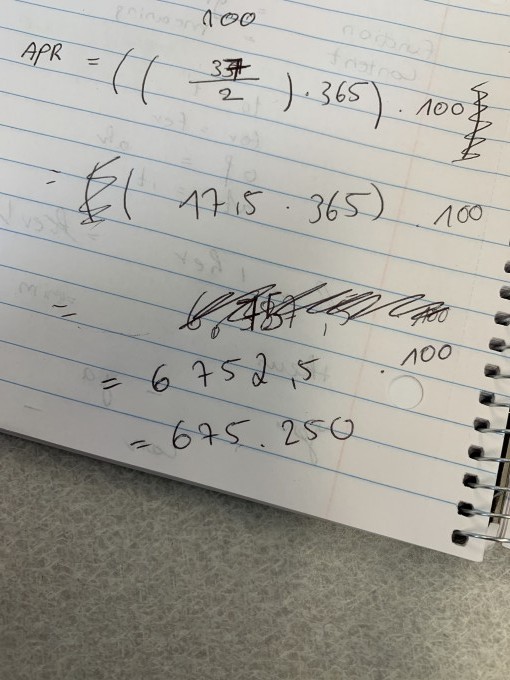 100
APR = ((37/2) · 365) · 100
= (17,5 · 365) · 100
=
= 6 752,5 · 100
= 675.250